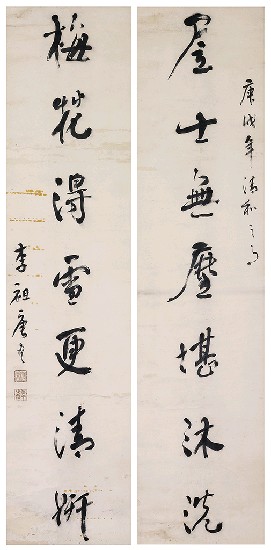 庚戌年清和之月
居士無塵堪沐洗
梅花得雪更清妍
李祖